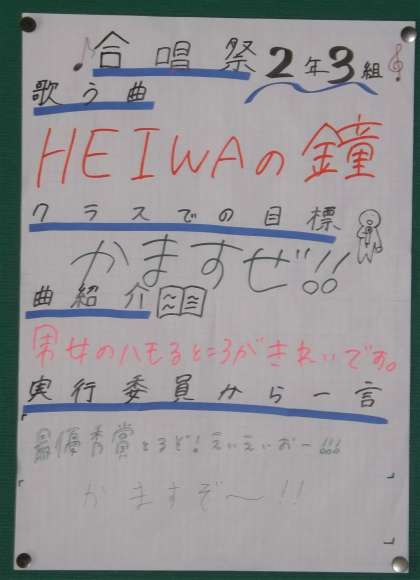 合唱祭 2年3組
歌う曲
HEIWAの鐘
クラスでの目標
かますぜ!!
曲紹介
男女のハモるところがきれいです。
実行委員から一言
最優秀賞とるぞ!えいえいおー!!!
かますぞ〜!!